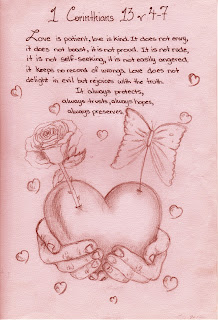 1 Corinthians 13 v 4-7
Love is patient, love is kind. It does not envy,
it does not boast, it is not proud. It is not rude,
it is not self-seeking, it is not easily angered,
it keeps no record of wrongs. Love does not
delight in evil but rejoices with the truth.
It always protects,
always trusts, always hopes,
always preserves.